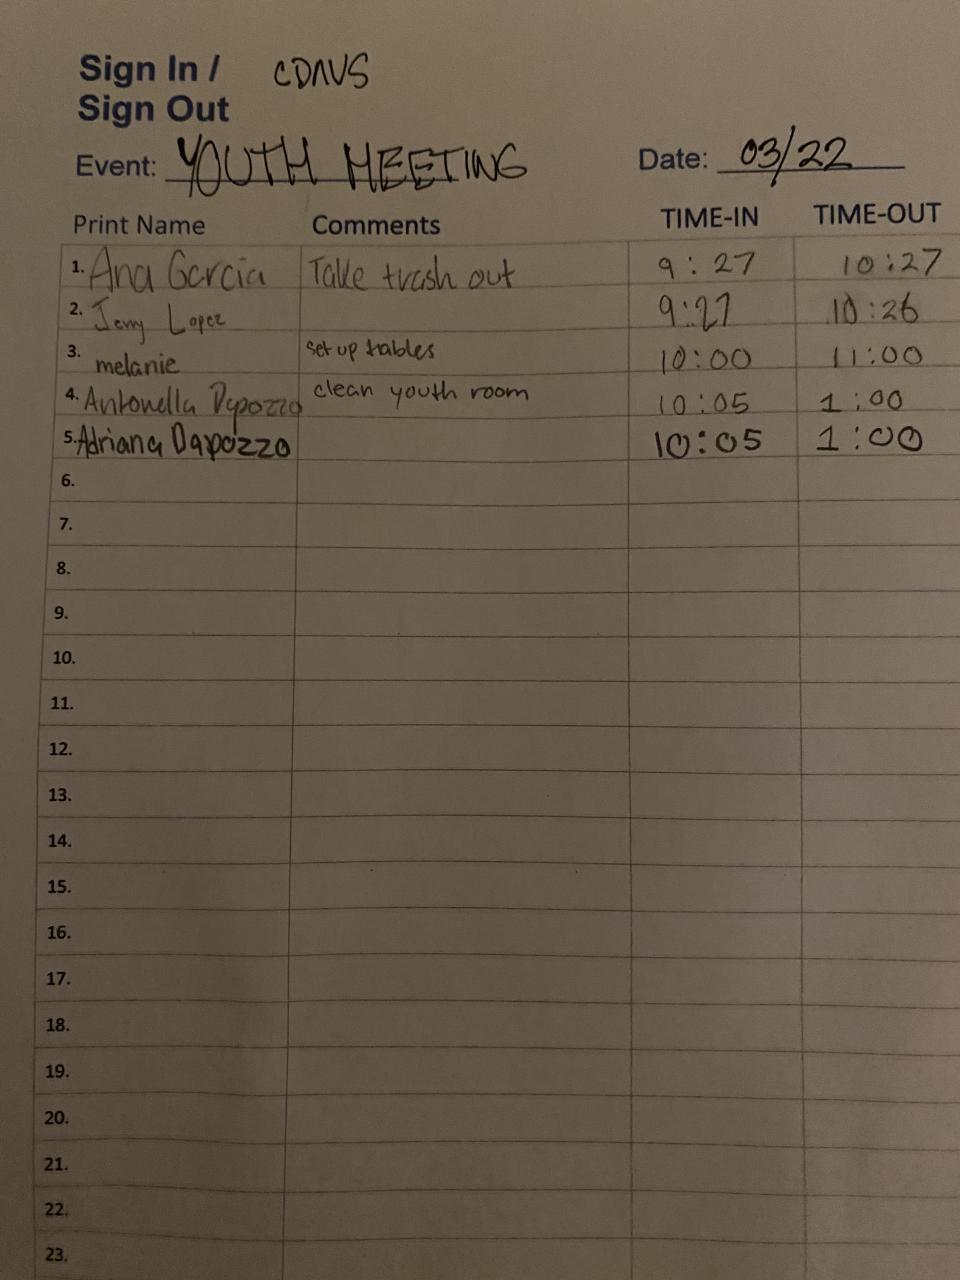 Sign In / CDAVS
Sign Out
Event: YOUTH MEETING Date: 03/22
Print Name Comments TIME-IN TIME-OUT
1. Ana Garcia Take trash out 9:27 10:27
2. Lopez 9:27 10:26
3. melanie set up tables 10:00 11:00
4. Antonella Dapozzo clean youth room 10:05 1:00
5. Adriana Dapozzo 10:05 1:00
6.
7.
8.
9.
10.
11.
12.
13.
14.
15.
16.
17.
18.
19.
20.
21.
22.
23.